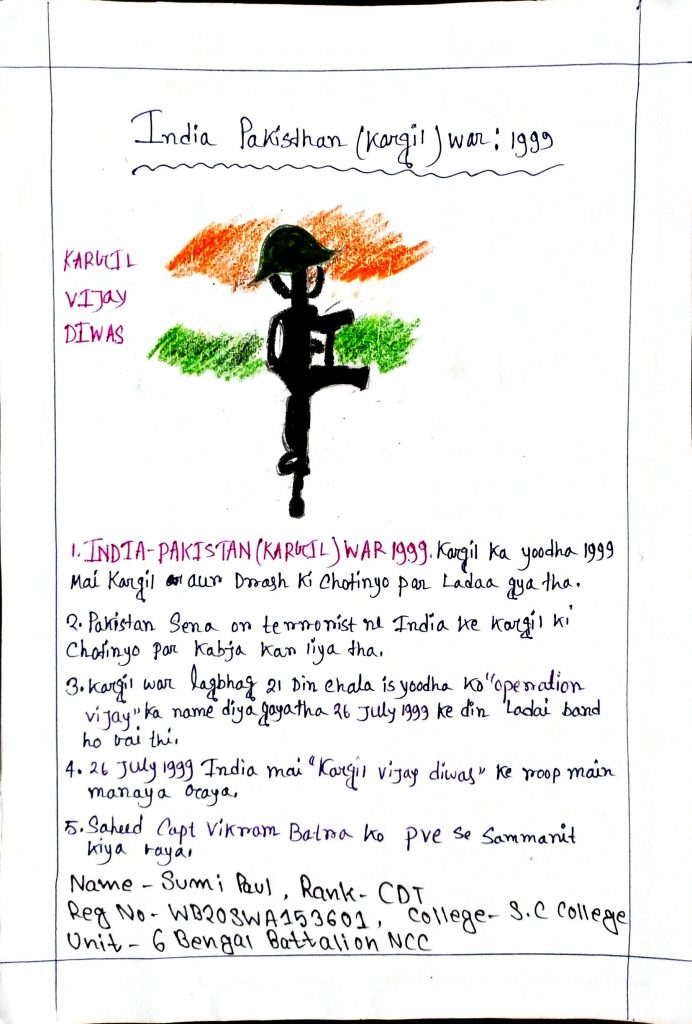 India Pakisthan (Kargil) war: 1999
KARGIL
VIJAY
DIWAS
1. INDIA-PAKISTAN (KARGIL) WAR 1999. Kargil ka yoodha 1999
Mai Kargil aur Drrash Ki Chotinyo par Ladaa gya tha.
2. Pakistan Sena or terrorist ne India ke Kargil ki
Chotinyo par Kabja Kar liya tha.
3. Kargil war lagbhag 21 Din chala is yoodha ko "operration
vijay" ka name diya gaya tha 26 July 1999 ke din Ladai band
ho gai thi.
4. 26 July 1999 India mai "Kargil vijay diwas" ke roop main
manaya gaya.
5. Saheed Capt Vikram Batra ko pve se Sammanit
kiya gaya.
Name - Sumi Paul, Rank- CDT
Reg No- WB20SWA153601, College- S.C College
Unit - 6 Bengal Battalion NCC